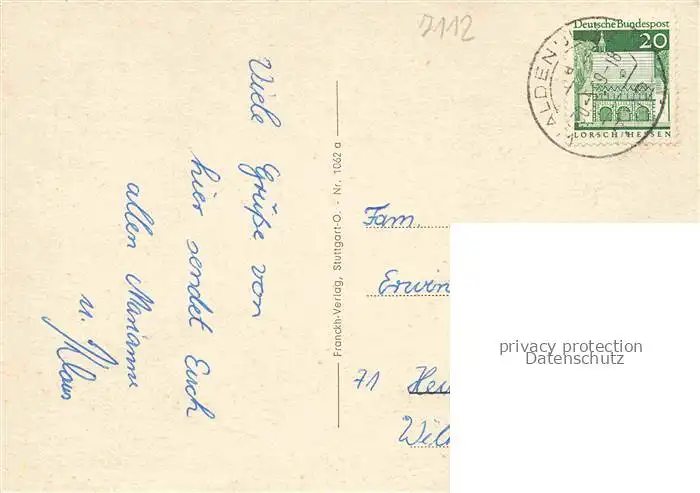 7112
Deutsche Bundespost
20
LORSCH/HESSEN
WALDEN
Viele Grüße von
hier sendet Euch
allen Marianne
u. Klaus
Franckh-Verlag, Stuttgart-O. - Nr. 1062 a
Fam.
Erwin
71
privacy protection
Datenschutz